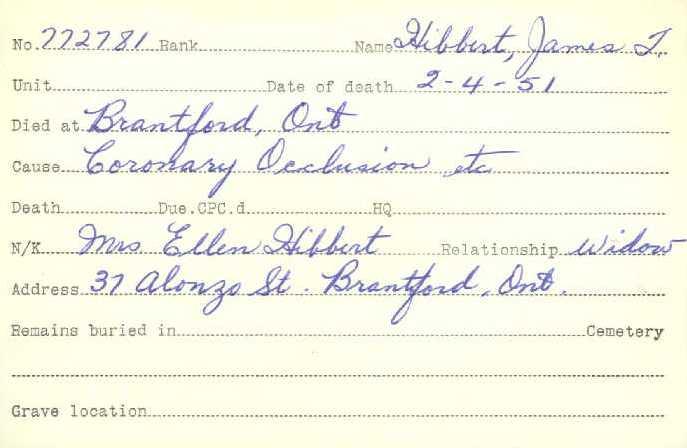 No. 772781 Rank Name Hibbert, James T.
Unit Date of death 2-4-51
Died at Brantford, Ont
Cause Coronary Occlusion etc
Death Due.CPC.d HQ
N/K Mrs Ellen Hibbert Relationship widow
Address 37 Alonzo St. Brantford, Ont.
Remains buried in Cemetery
Grave location